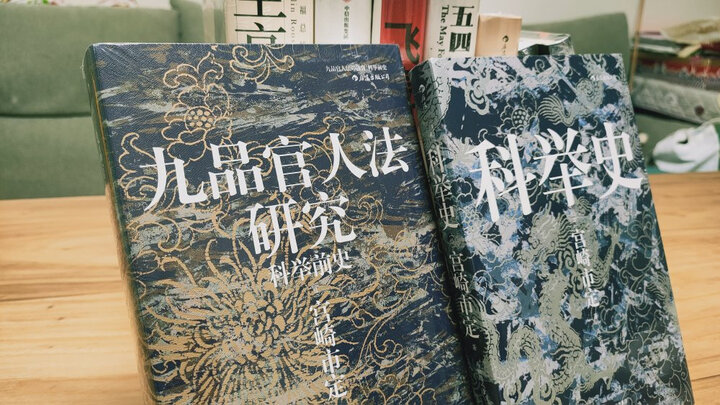 九品官人法
研究
科举前史
宫崎市定
科举史
宫崎市定
科举史
宫崎市定
五四
The May Fo
飞